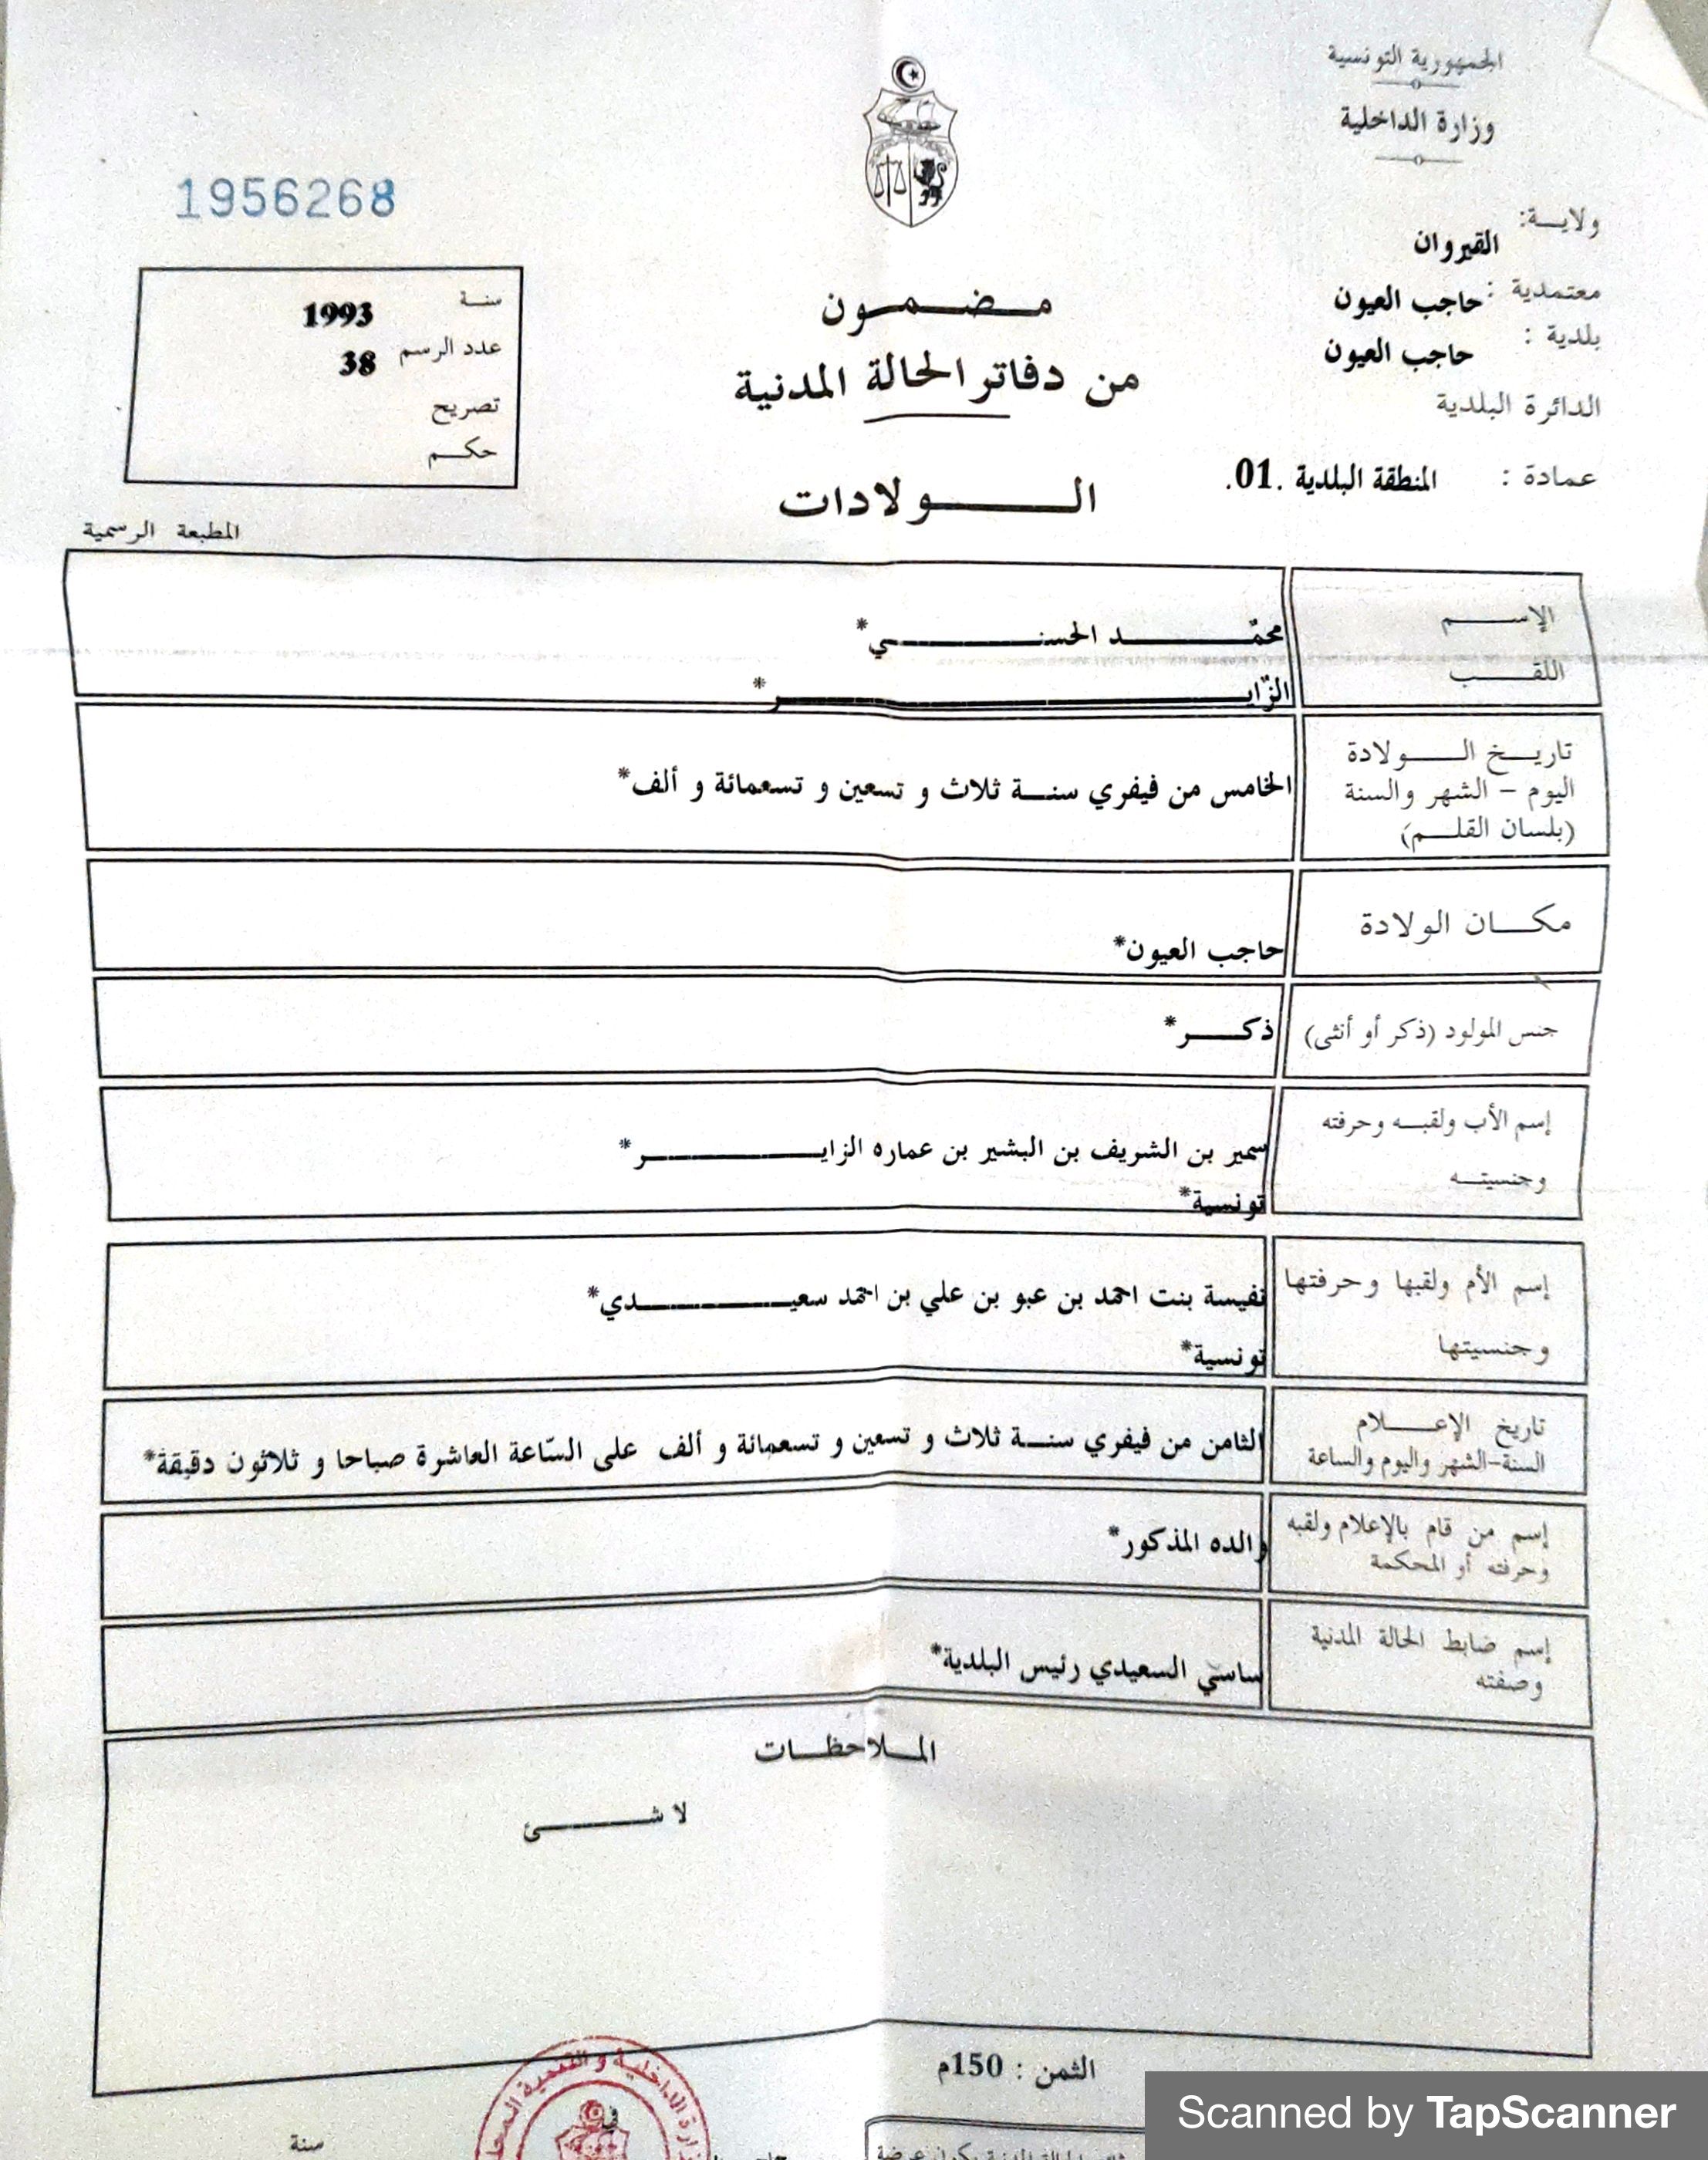 الجمهورية التونسية
وزارة الداخلية
ولايـــة: القيروان
معتمدية : حاجب العيون
بلدية : حاجب العيون
الدائرة البلدية
عمادة : المنطقة البلدية .01.
1956268
سنة 1993
عدد الرسم 38
تصريح
حكم
المطبعة الرسمية
مضمون
من دفاتر الحالة المدنية
الولادات
الإسم
محمّد الحسني*
اللقب
الزّاير*
تاريخ الولادة
اليوم - الشهر والسنة
(بلسان القلم)
الخامس من فيفري سنة ثلاث و تسعين و تسعمائة و ألف*
مكان الولادة
حاجب العيون*
جنس المولود (ذكر أو أنثى)
ذكر*
إسم الأب ولقبه وحرفته
وجنسيته
سمير بن الشريف بن البشير بن عماره الزاير*
تونسية*
إسم الأم ولقبها وحرفتها
وجنسيتها
نفيسة بنت احمد بن عبو بن علي بن احمد سعيدي*
تونسية*
تاريخ الإعلام
السنة-الشهر واليوم والساعة
الثامن من فيفري سنة ثلاث و تسعين و تسعمائة و ألف على السّاعة العاشرة صباحا و ثلاثون دقيقة*
إسم من قام بالإعلام ولقبه
وحرفته أو المحكمة
والده المذكور*
إسم ضابط الحالة المدنية
وصفته
ساسي السعيدي رئيس البلدية*
الملاحظات
لا شئ
الثمن : 150م
سنة
Scanned by TapScanner